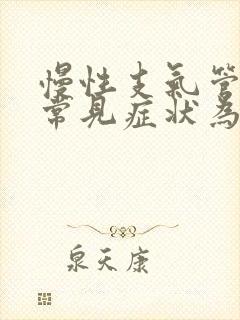 慢性支氣管
常見症状為
泉天康